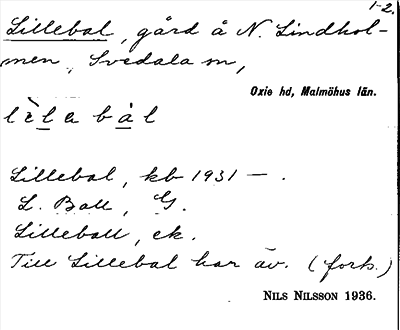 1-2.
Lillebal, gård å N. Lindhol-
men, Svedala sn,
Oxie hd, Malmöhus län.
lìlabál
Lillebal, kb 1931 — .
L. Ball, G.
Lilleball, ek.
Till Lillebal har äv. (forts.)
NILS NILSSON 1936.